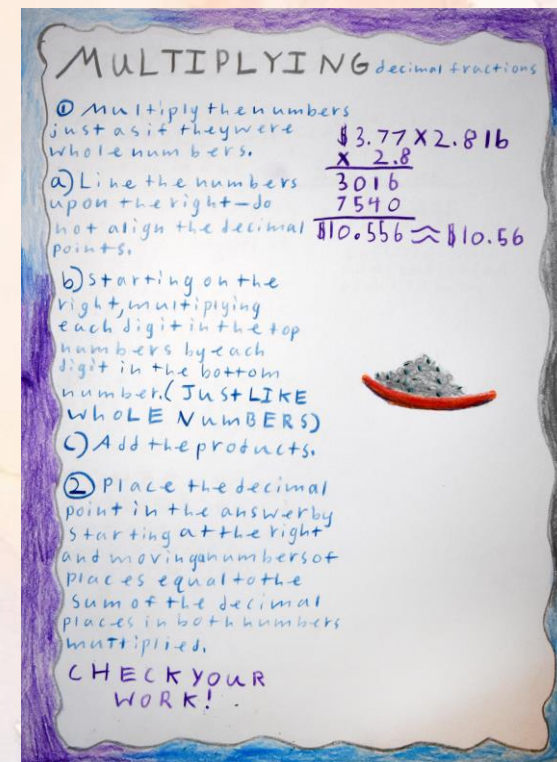 MULTIPLYING decimal fractions
① Multiply the numbers
just as if they were
whole numbers.
a) Line the numbers
up on the right – do
not align the decimal
points.
b) Starting on the
right, multiplying
each digit in the top
numbers by each
digit in the bottom
number. (JUST LIKE
WHOLE NUMBERS)
c) Add the products.
② Place the decimal
point in the answer by
starting at the right
and moving a numbers of
places equal to the
sum of the decimal
places in both numbers
multiplied.
CHECK YOUR
WORK!
$3.77 X 2.8 lb
X 2.8
3016
7540
$10.556 ≈ $10.56